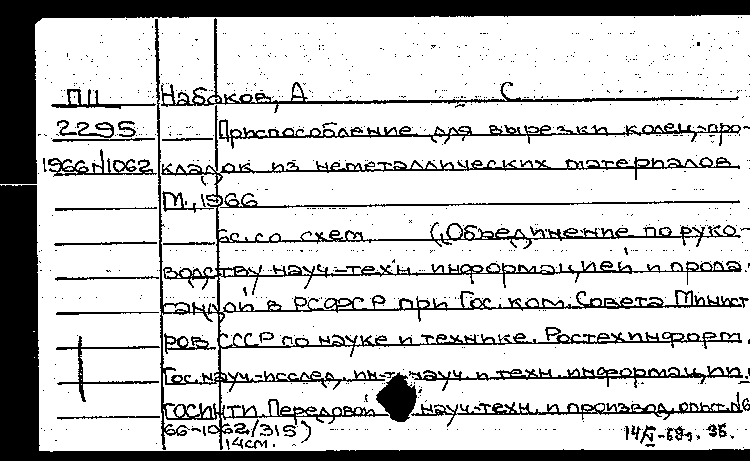 ПII Набоков, А С
2295 Приспособление для вырезки колец-про-
1966 N1062 кладок из неметаллических материалов
М., 1966
6с. со схем. („Объединение по руко-
водству науч.-техн. информацией и пропа-
гандой в РСФСР при Гос. ком. Совета Минист
ров СССР по науке и технике. Ростехинформ.
Гос. науч.-исслед. ин-т науч. и техн. информации.
ГОСИНТИ. Передовой науч.-техн. и производ. опыт. N6
66-1062/315)
14см. 14/V-69г. 35.